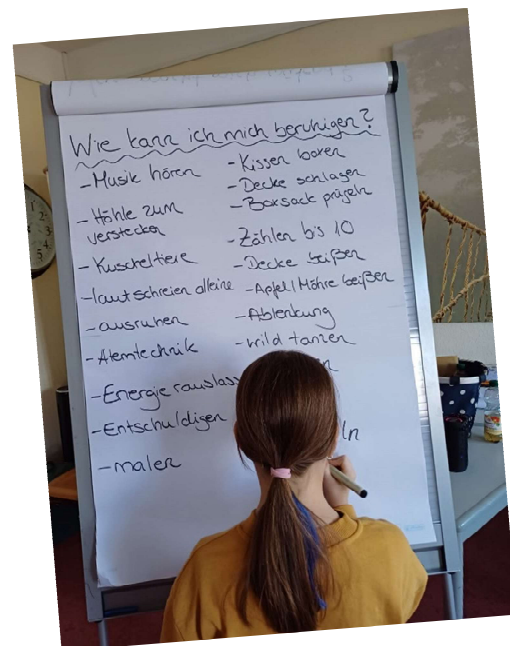 Wie kann ich mich beruhigen?
- Musik hören
- Höhle zum
verstecken
- Kuscheltiere
- laut schreien alleine
- ausruhen
- Atemtechnik
- Energie rauslass
- Entschuldigen
- malen
- Kissen boxen
- Decke schlagen
- Boxsack prügeln
- Zählen bis 10
- Decke beißen
- Apfel/Möhre beißen
- Ablenkung
- wild tanzen
ln
12